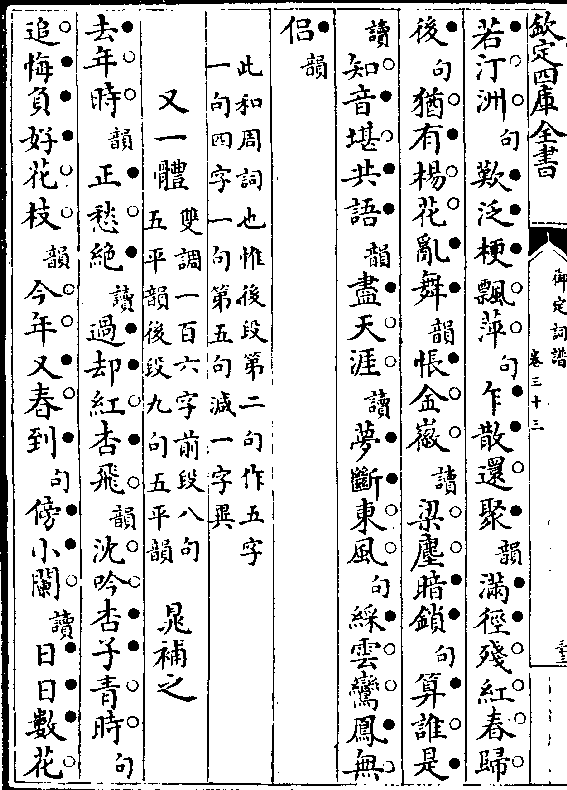 欽定四庫全書
御定詞譜
卷三十三
若汀洲句歎泛梗飄萍句乍散還聚韻滿徑殘紅春歸
後句猶有楊花亂舞韻悵金徽讀梁塵暗鎖句算誰是
讀知音堪共語韻盡天涯讀夢斷東風句綵雲鸞鳳無
侶韻
此和周詞也惟後段第二句作五字
一句四字一句第五句減一字異
又一體雙調一百六字前段八句
五平韻後段九句五平韻晁補之
去年時韻正愁絶讀過却紅杏飛韻沈吟杏子青時句
追悔負好花枝韻今年又春到句傍小闌讀日日數花